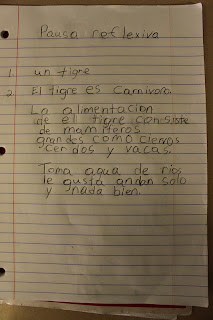 Pausa reflexiva
1. un tigre
2. El tigre es carnivoro.
La alimentacion
de el tigre consiste
de mamiferos
grandes como ciervos
cerdos y vacas.
Toma agua de rios
le gusta andan solo
y nada bien.